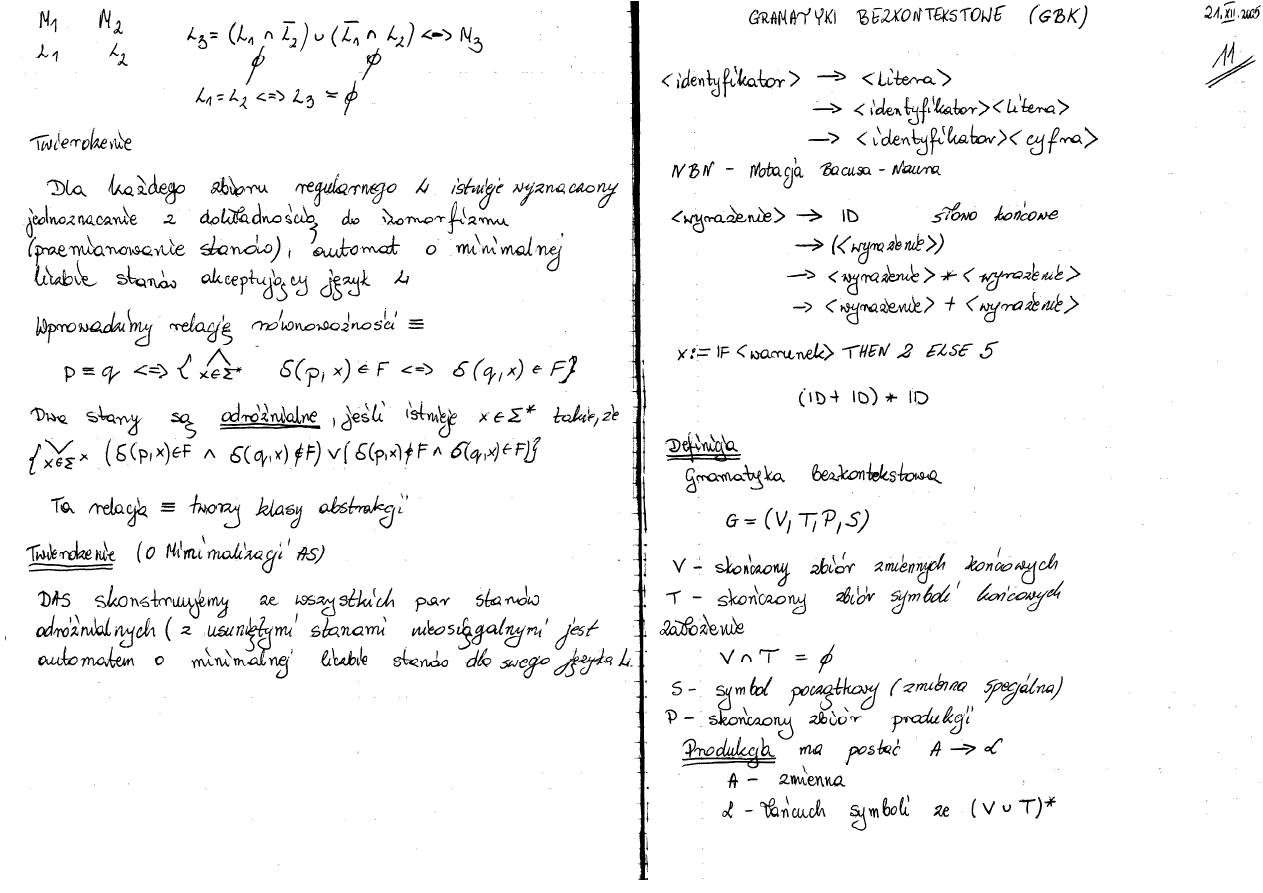 M₁ M₂
L₁ L₂
L₃ = (L₁ ∩ L̅₂) ∪ (L̅₁ ∩ L₂) <-> M₃
ϕ ϕ
L₁ = L₂ <=> L₃ = ϕ
Twierdzenie
Dla każdego zbioru regularnego L istnieje wyznaczony
jednoznacznie z dokładnością do izomorfizmu
(przemianowanie stanów), automat o minimalnej
liczbie stanów akceptujący język L
Wprowadzimy relację równoważności ≡
p ≡ q <=> { ⋀ x∈Σ* δ(p,x) ∈ F <=> δ(q,x) ∈ F}
Dwa stany są odróżnialne, jeśli istnieje x ∈ Σ* takie, że
{ ⋁ x∈Σ* (δ(p,x)∈F ∧ δ(q,x)∉F) ∨ (δ(p,x)∉F ∧ δ(q,x)∈F)}
Ta relacja ≡ tworzy klasy abstrakcji
Twierdzenie (O Minimalizacji AS)
DAS skonstruujemy ze wszystkich par stanów
odróżnialnych (z usuniętymi stanami nieosiągalnymi jest
automatem o minimalnej liczbie stanów dla swego języka L.
GRAMATYKI BEZKONTEKSTOWE (GBK)
21.XII.2005
11
<identyfikator> → <Litera>
→ <identyfikator><Litera>
→ <identyfikator><cyfra>
NBN - Notacja Bacusa - Naura
<wyrażenie> → ID słowo końcowe
→ (<wyrażenie>)
→ <wyrażenie> * <wyrażenie>
→ <wyrażenie> + <wyrażenie>
x := IF <warunek> THEN 2 ELSE 5
(ID + ID) * ID
Definicja
Gramatyka bezkontekstowa
G = (V, T, P, S)
V - skończony zbiór zmiennych końcowych
T - skończony zbiór symboli końcowych
założenie
V ∩ T = ϕ
S - symbol początkowy (zmienna specjalna)
P - skończony zbiór produkcji
Produkcja ma postać A → α
A - zmienna
α - łańcuch symboli ze (V ∪ T)*